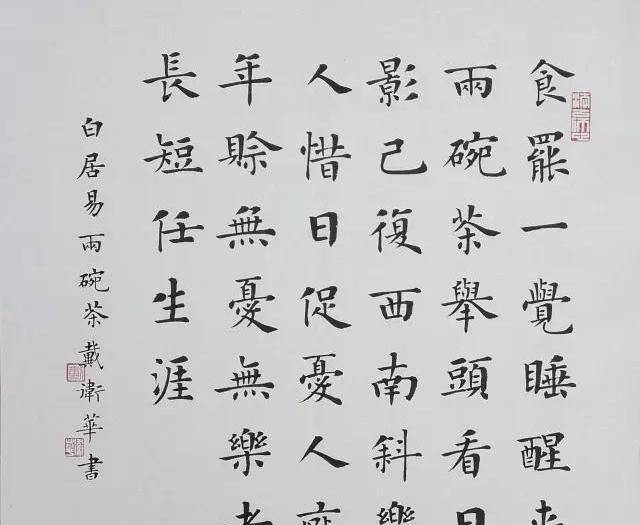 食罷一覺睡醒来
兩碗茶舉頭看日
影己復西南斜樂
人惜日促憂人
年賒無憂無樂者
長短任生涯
白居易兩碗茶戴衛華書